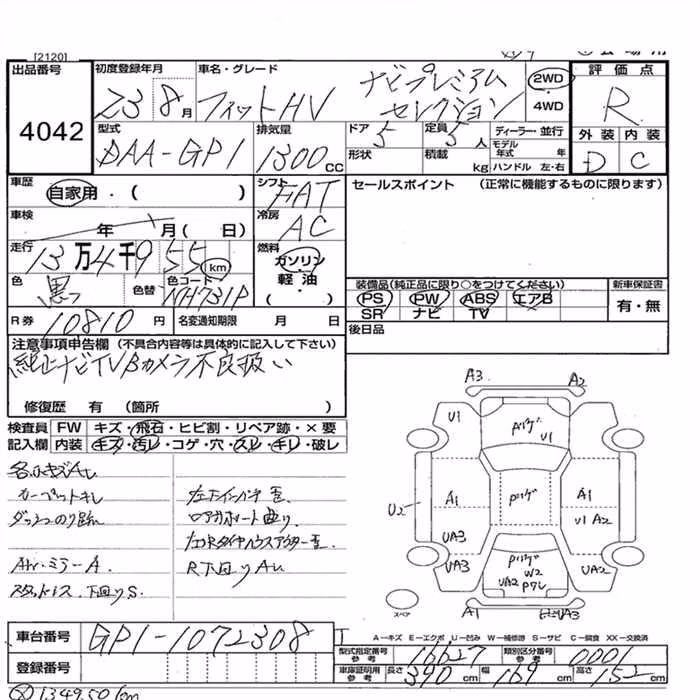 [2120]
出品番号 初度登録年月 車名・グレード 評価点
4042
23 8月 フィットHV ナビプレミアムセレクション 2WD ・4WD R
型式 排気量 ドア 定員 ディーラー・並行 外装 内装
DAA-GP1 1300cc 5 5人 モデル年式 年 D C
形状 積載 kg ハンドル 左・右
車歴 自家用・( ) シフト FAT セールスポイント (正常に機能するものに限ります)
車検 年 月( 日) 冷房 AC
走行 13万4千955km 燃料 ガソリン・軽油・( )
色 黒 色替 色コード NH731P
装備品(純正品に限り○をつけてください) 新車保証書
PS PW ABS エアB 有・無
SR ナビ TV
R券 10810円 名変通知期限 月 日
後日品
注意事項申告欄 (不具合内容等は具体的に記入して下さい)
純正ナビTVBカメラ不良扱い
修復歴 有 (箇所 )
検査員記入欄 FW キズ・飛石・ヒビ割・リペア跡・×要
内装 キズ・汚レ・コゲ・穴・スレ・キレ・破レ
カーペットキレ
R下回りAU
スタットレス.下回りS.
A3 A2
U1
U1
A1 A1
U2
U1 A2
UA3
UA3 UA2
W2
UA2
スペア
A1
A3
A-キズ E-エクボ U-凹み W-補修跡 S-サビ C-腐食 XX-交換済
車台番号 GP1-1072308
型式指定番号 参考 16627 類別区分番号 参考 0001
登録番号
車庫証明用 参考 長さ 390cm 幅 169cm 高さ 152cm
134950km